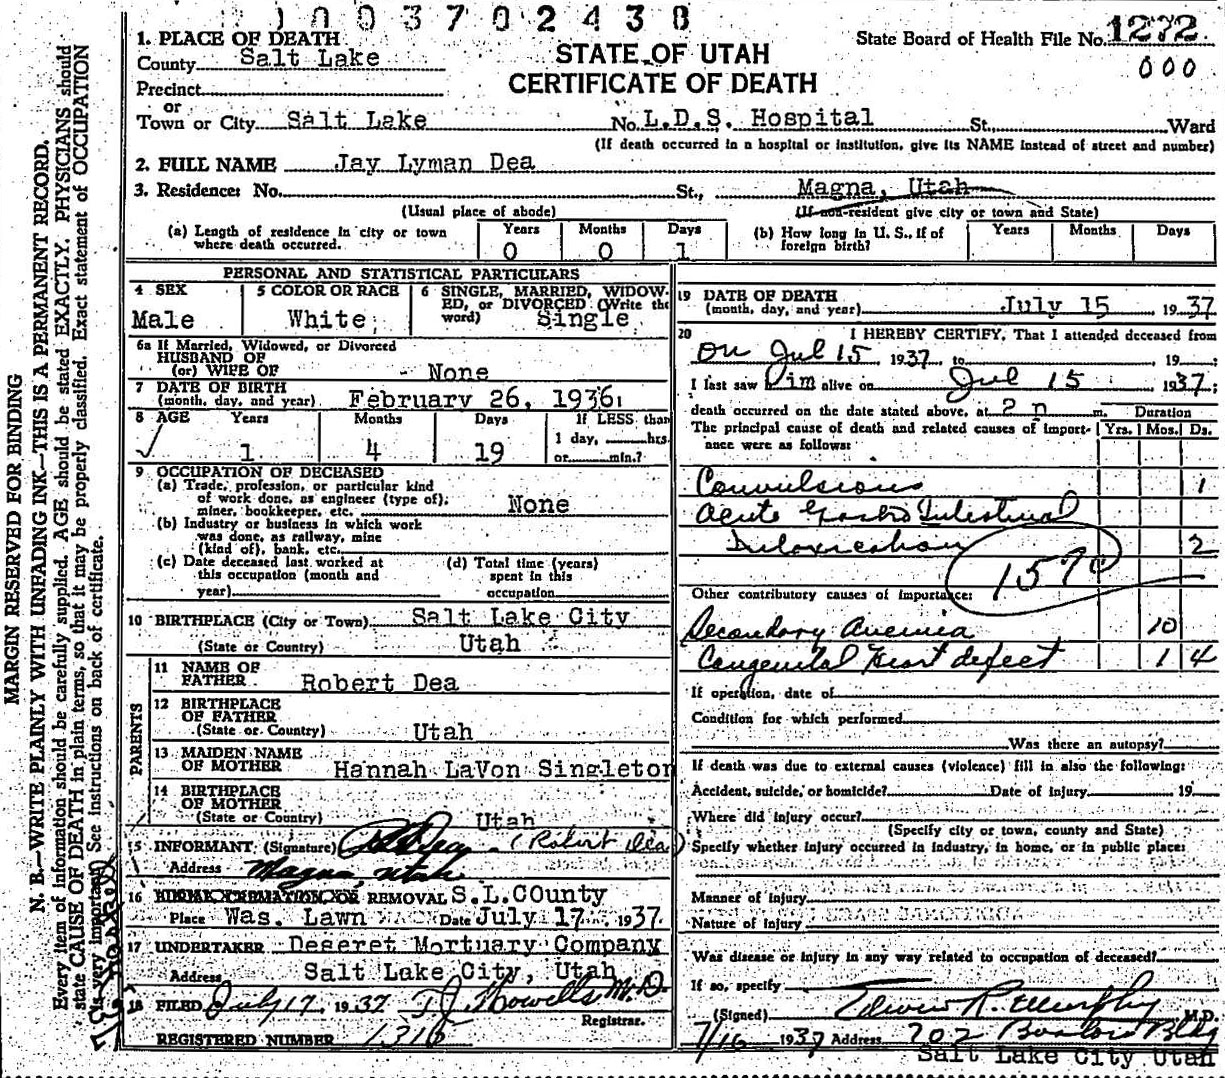 1003702438
1. PLACE OF DEATH
County Salt Lake
Precinct
or
Town or City Salt Lake
STATE OF UTAH
CERTIFICATE OF DEATH
State Board of Health File No. 1272
000
No. L.D.S. Hospital St., Ward
(If death occurred in a hospital or institution, give its NAME instead of street and number)
2. FULL NAME Jay Lyman Dea
3. Residence: No. St., Magna, Utah
(Usual place of abode) (If non-resident give city or town and State)
(a) Length of residence in city or town where death occurred. Years 0 Months 0 Days 1
(b) How long in U. S., if of foreign birth? Years Months Days
PERSONAL AND STATISTICAL PARTICULARS
4 SEX
Male
5 COLOR OR RACE
White
6 SINGLE, MARRIED, WIDOWED, or DIVORCED (Write the word) Single
6a If Married, Widowed, or Divorced
HUSBAND OF
(or) WIFE OF None
7 DATE OF BIRTH
(month, day, and year) February 26, 1936
8 AGE Years Months Days If LESS than
1 4 19 1 day, hrs.
or min.?
9 OCCUPATION OF DECEASED
(a) Trade, profession, or particular kind
of work done, as engineer (type of),
miner, bookkeeper, etc. None
(b) Industry or business in which work
was done, as railway, mine
(kind of), bank, etc.
(c) Date deceased last worked at
this occupation (month and
year)
(d) Total time (years)
spent in this
occupation
10 BIRTHPLACE (City or Town) Salt Lake City
(State or Country) Utah
PARENTS
11 NAME OF
FATHER Robert Dea
12 BIRTHPLACE
OF FATHER
(State or Country) Utah
13 MAIDEN NAME
OF MOTHER Hannah LaVon Singleton
14 BIRTHPLACE
OF MOTHER
(State or Country) Utah
15 INFORMANT, (Signature) (Robert Dea)
Address Magna, Utah
16 BURIAL, CREMATION, OR REMOVAL S.L.COunty
Place Was. Lawn Date July 17 1937
17 UNDERTAKER Deseret Mortuary Company
Address Salt Lake City, Utah
18 FILED July 17, 1937 Howells M.D.
Registrar.
REGISTERED NUMBER 1316
19 DATE OF DEATH
(month, day, and year) July 15 1937
20 I HEREBY CERTIFY, That I attended deceased from
On Jul 15, 1937 to 19
I last saw him alive on Jul 15 1937
death occurred on the date stated above, at 2 m. Duration
The principal cause of death and related causes of importance were as follows: Yrs. Mos. Ds.
Convulsions 1
Acute Gastro Intestinal
Intoxication 2
157
Other contributory causes of importance:
Secondary Anemia 10
Congenital Heart defect 1 4
If operation, date of
Condition for which performed
Was there an autopsy?
If death was due to external causes (violence) fill in also the following:
Accident, suicide, or homicide? Date of injury 19
Where did injury occur?
(Specify city or town, county and State)
Specify whether injury occurred in industry, in home, or in public place:
Manner of Injury
Nature of injury
Was disease or injury in any way related to occupation of deceased?
If so, specify
(Signed) Edwin R. Murphy M.D.
7/16 1937 Address 702 Boston Bldg
Salt Lake City Utah
MARGIN RESERVED FOR BINDING
N. B.—WRITE PLAINLY WITH UNFADING INK—THIS IS A PERMANENT RECORD.
Every item of information should be carefully supplied. AGE should be stated EXACTLY. PHYSICIANS should
state CAUSE OF DEATH in plain terms, so that it may be properly classified. Exact statement of OCCUPATION
is very important. See instructions on back of certificate.